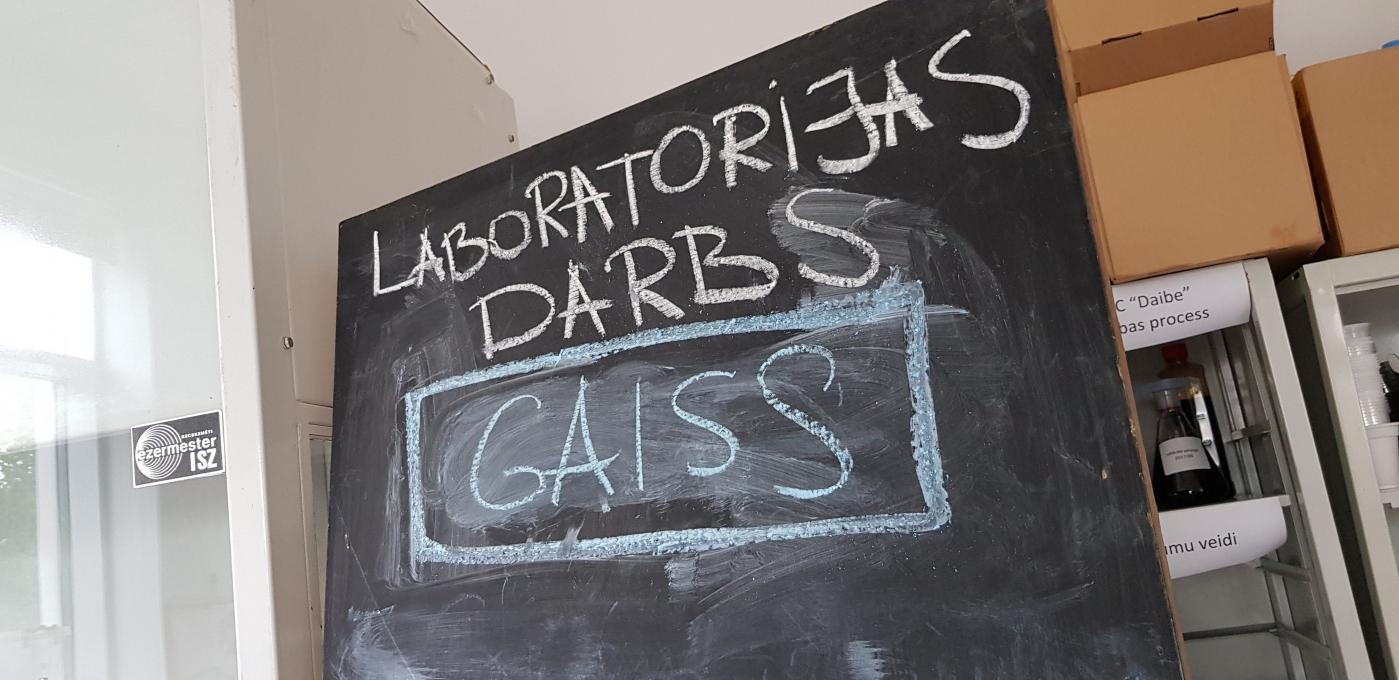 LABORATORIJAS
DARBS
GAISS
ezermester
ISZ
C “Daibe”
pas process
mu veidi